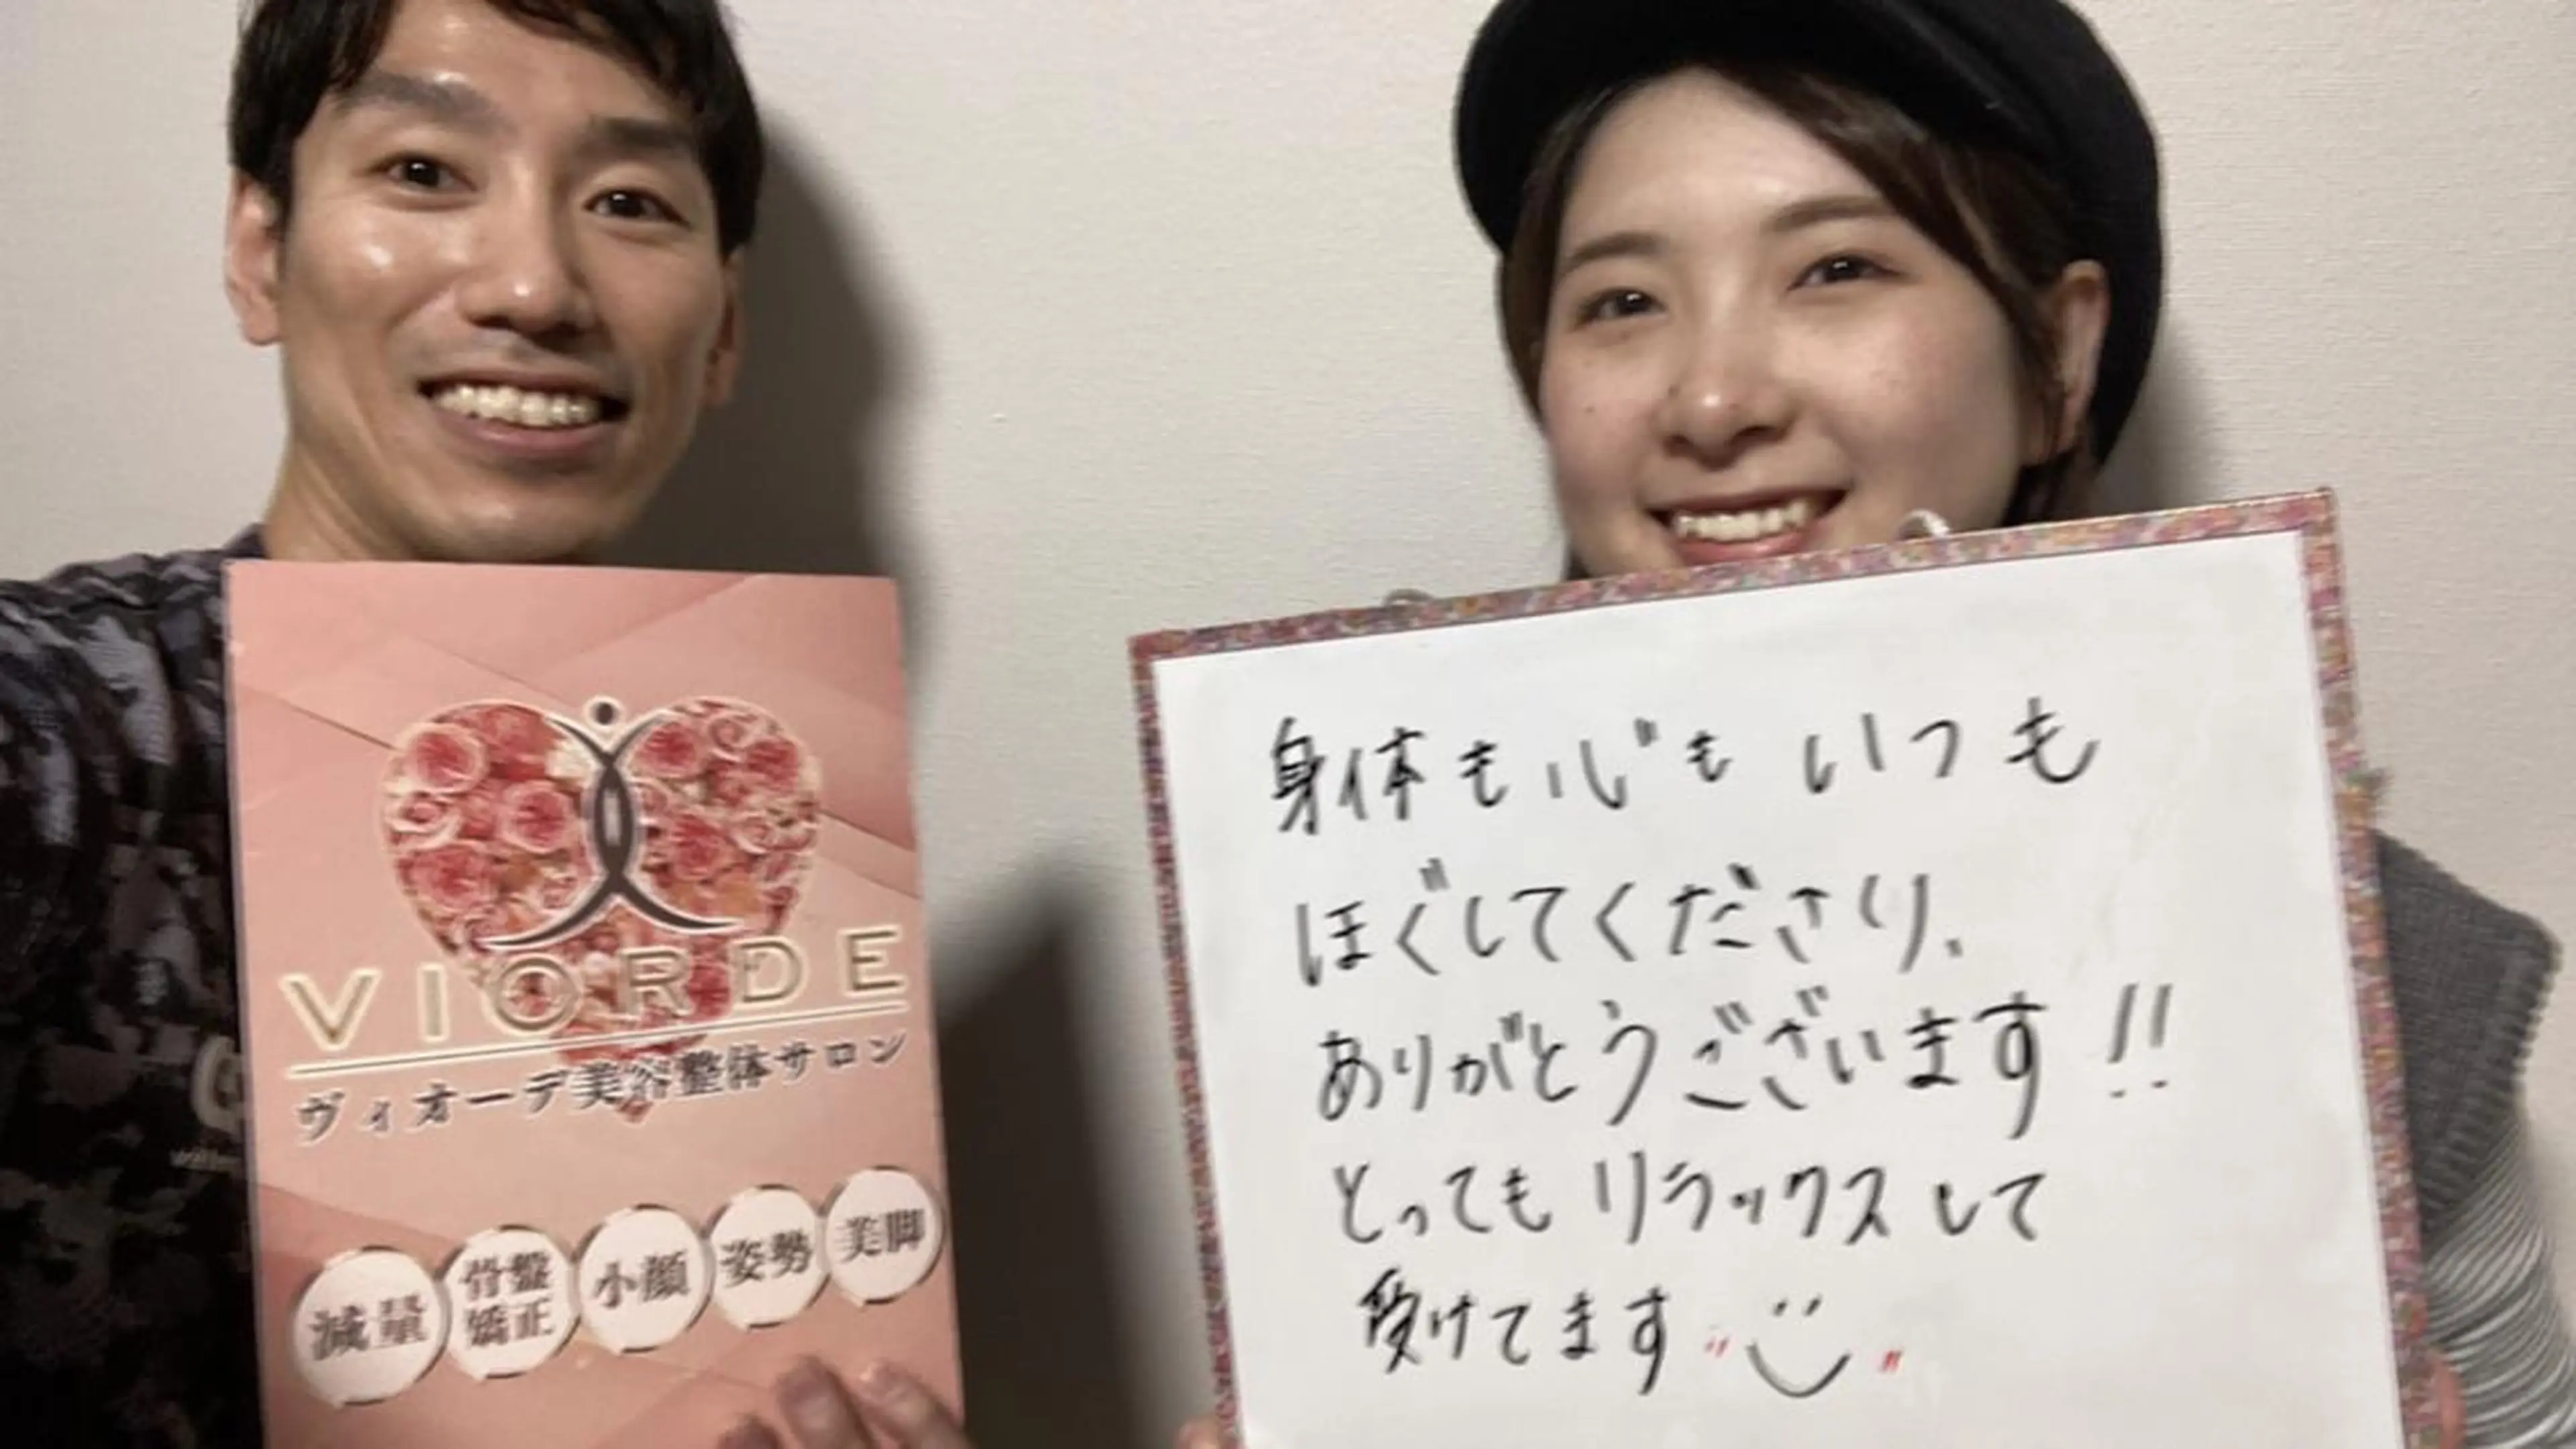 VIORDE
ヴィオーデ美容整体サロン
減量
骨盤
矯正
小顔
姿勢
美脚
身体も心も いつも
ほぐしてくださり、
ありがとうございます!!
とっても リラックスして
受けてます